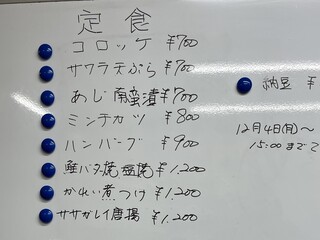 定食
コロッケ ¥700
サワラ天ぷら ¥700
あじ南蛮漬 ¥700
ミンチカツ ¥800
ハンバーグ ¥900
鮭バタ焼 塩焼 ¥1,200
かれい煮つけ ¥1,200
ササガレイ唐揚 ¥1,200
納豆 ¥
12月4日(月)〜
15:00まで